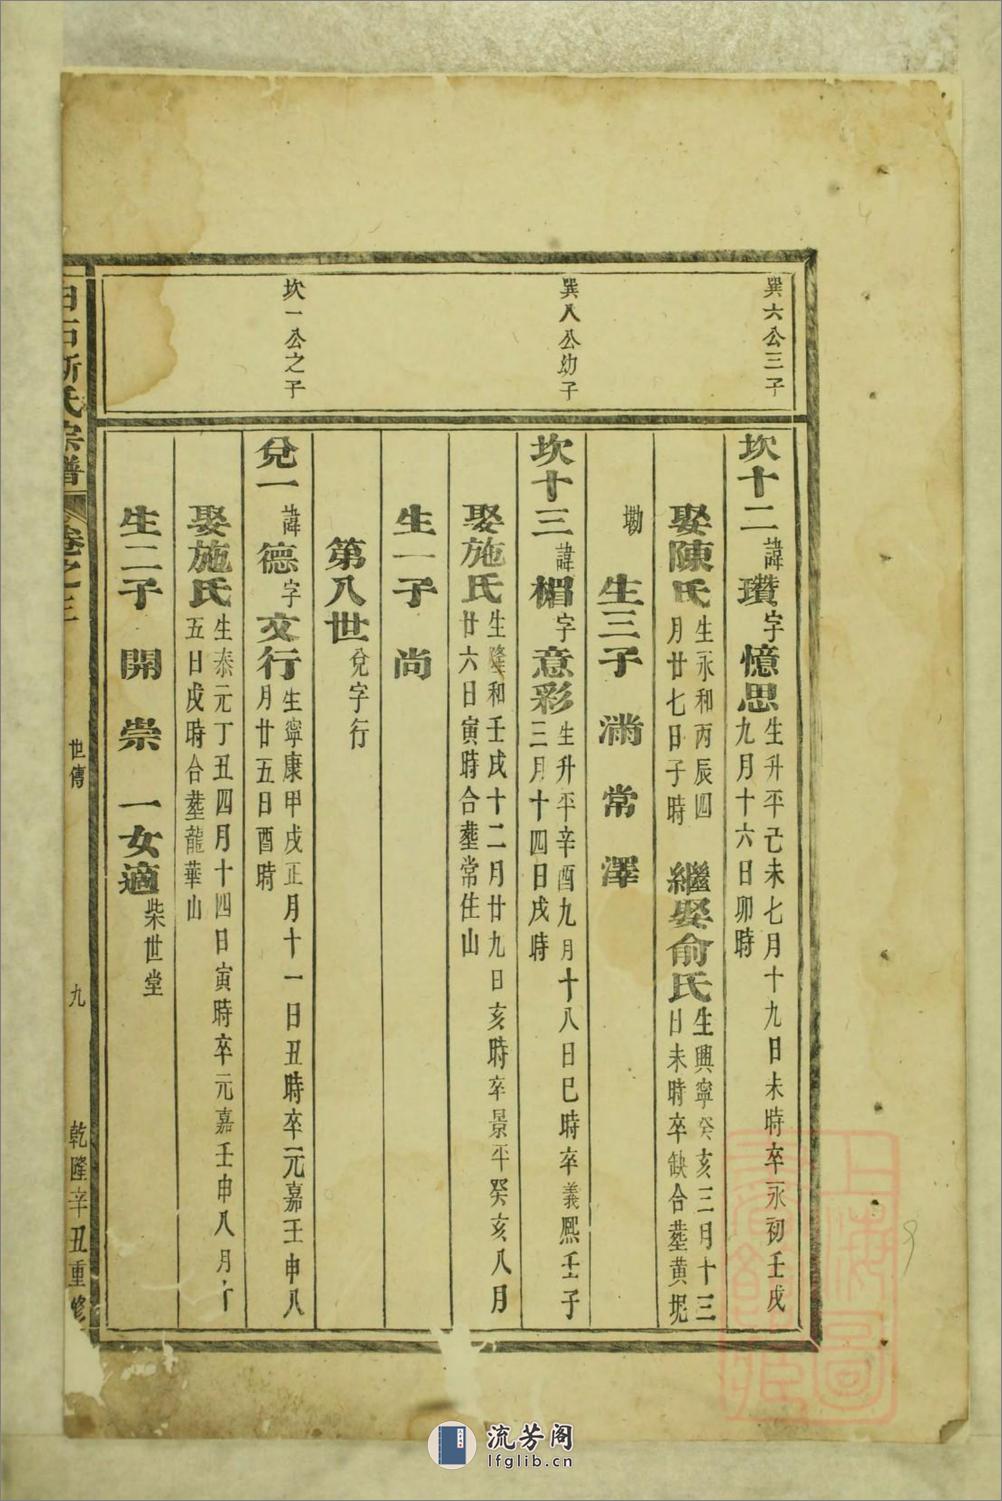 巽六公三子
巽八公幼子
坎一公之子
坎十二諱瓚字憶思生升平己未七月十九日未時卒永初壬戌
九月十六日卯時
娶陳氏生永和丙辰四
月廿七日子時
繼娶俞氏生興寧癸亥三月十三
日未時卒缺合塟黄垊
塢
生三子 滿 常 澤
坎十三諱楣字意彩生升平辛酉九月十八日巳時卒義熙壬子
三月十四日戌時
娶施氏生隆和壬戌十二月廿九日亥時卒景平癸亥八月
廿六日寅時合塟常住山
生一子 尚
第八世兌字行
兌一諱德字文行生寧康甲戌正月十一日丑時卒元嘉壬申八
月廿五日酉時
娶施氏生泰元丁丑四月十四日寅時卒元嘉壬申八月十
五日戌時合塟龍華山
生二子 開 崇 一女適柴世堂
白石斯氏宗譜 卷之三 世傳 九 乾隆辛丑重修
上海圖書館藏
流芳阁
lfglib.cn